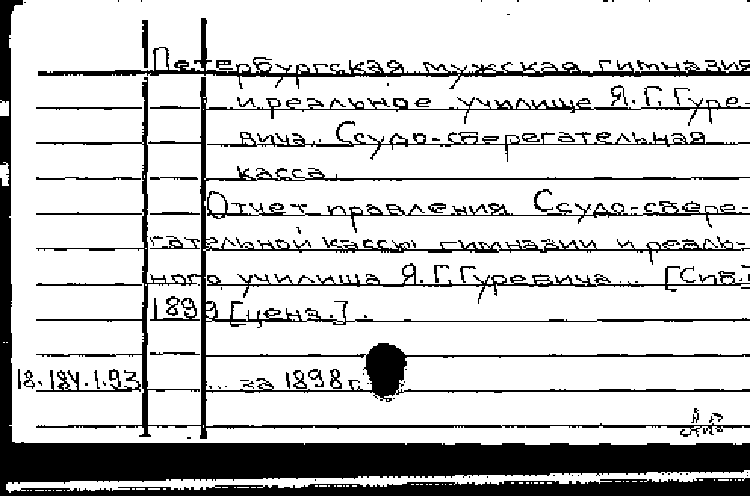 Петербургская мужская гимназия
и реальное училище Я. Г. Гуре-
вича. Ссудо-сберегательная
касса.
Отчет правления Ссудо-сбере-
гательной кассы гимназии и реаль-
ного училища Я. Г. Гуревича. [Спб.]
1899 [цена.].
18.184.1.93 ... за 1898 г.